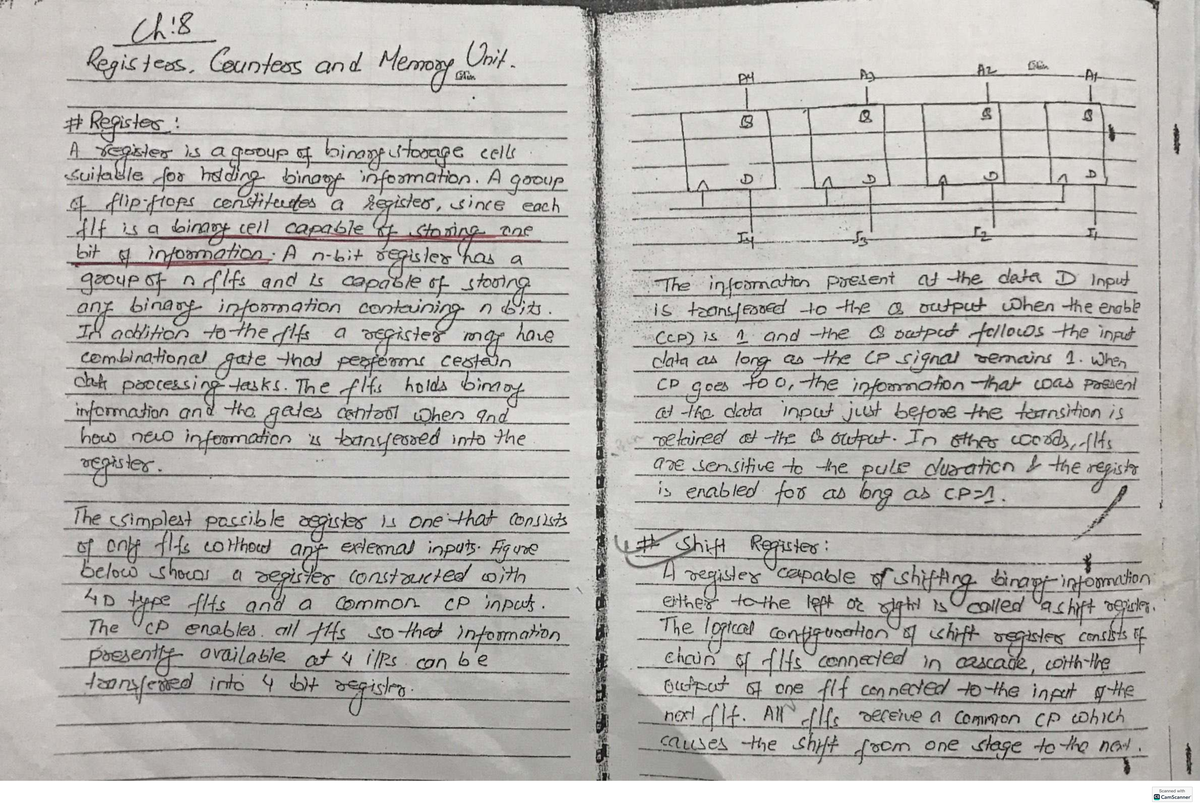 Ch:8
Registers, Counters and Memory Unit.
# Register:
A register is a group of binary storage cells
suitable for holding binary information. A group
of flip-flops constitutes a register, since each
f/f is a binary cell capable of storing one
bit of information. A n-bit register has a
group of n f/fs and is capable of storing
any binary information containing n bits.
In addition to the f/fs a register may have
combinational gate that performs certain
data processing tasks. The f/fs holds binary
information and the gates control when and
how new information is transferred into the
register.
The simplest possible register is one that consists
of only f/fs without any external inputs. Figure
below shows a register constructed with
4 D type f/fs and a common CP inputs.
The CP enables all f/fs so that information
presently available at 4 i/Ps can be
transferred into 4 bit register.
A4 A3 A2 A1
Q Q Q Q
D D D D
I4 I3 I2 I1
The information present at the data D input
is transferred to the Q output when the enable
(CP) is 1 and the Q output follows the input
data as long as the CP signal remains 1. When
CP goes to 0, the information that was present
at the data input just before the transition is
retained at the Q output. In other words, f/fs
are sensitive to the pule duration & the registr
is enabled for as long as CP=1.
# Shift Register:
A register capable of shifting binary information
either to the left or right is called a shift register.
The logical configuration of shift register consists of
chain of f/fs connected in cascade, with the
output of one f/f connected to the input of the
next f/f. All f/fs receive a common CP which
causes the shift from one stage to the next.
Scanned with
CamScanner